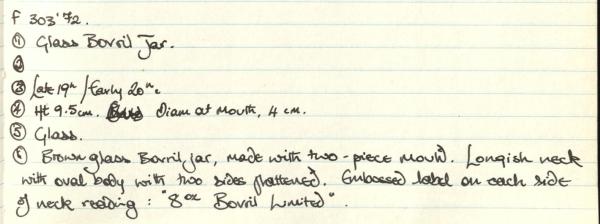 F 303'72.
① Glass Bovril Jar.
②
③ Late 19th / Early 20th c.
④ Ht 9.5cm. Diam at Mouth, 4 cm.
⑤ Glass.
⑥ Brown glass Bovril jar, made with two-piece mould. Longish neck
with oval body with two sides flattened. Embossed label on each side
of neck reading: "8 oz Bovril Limited".